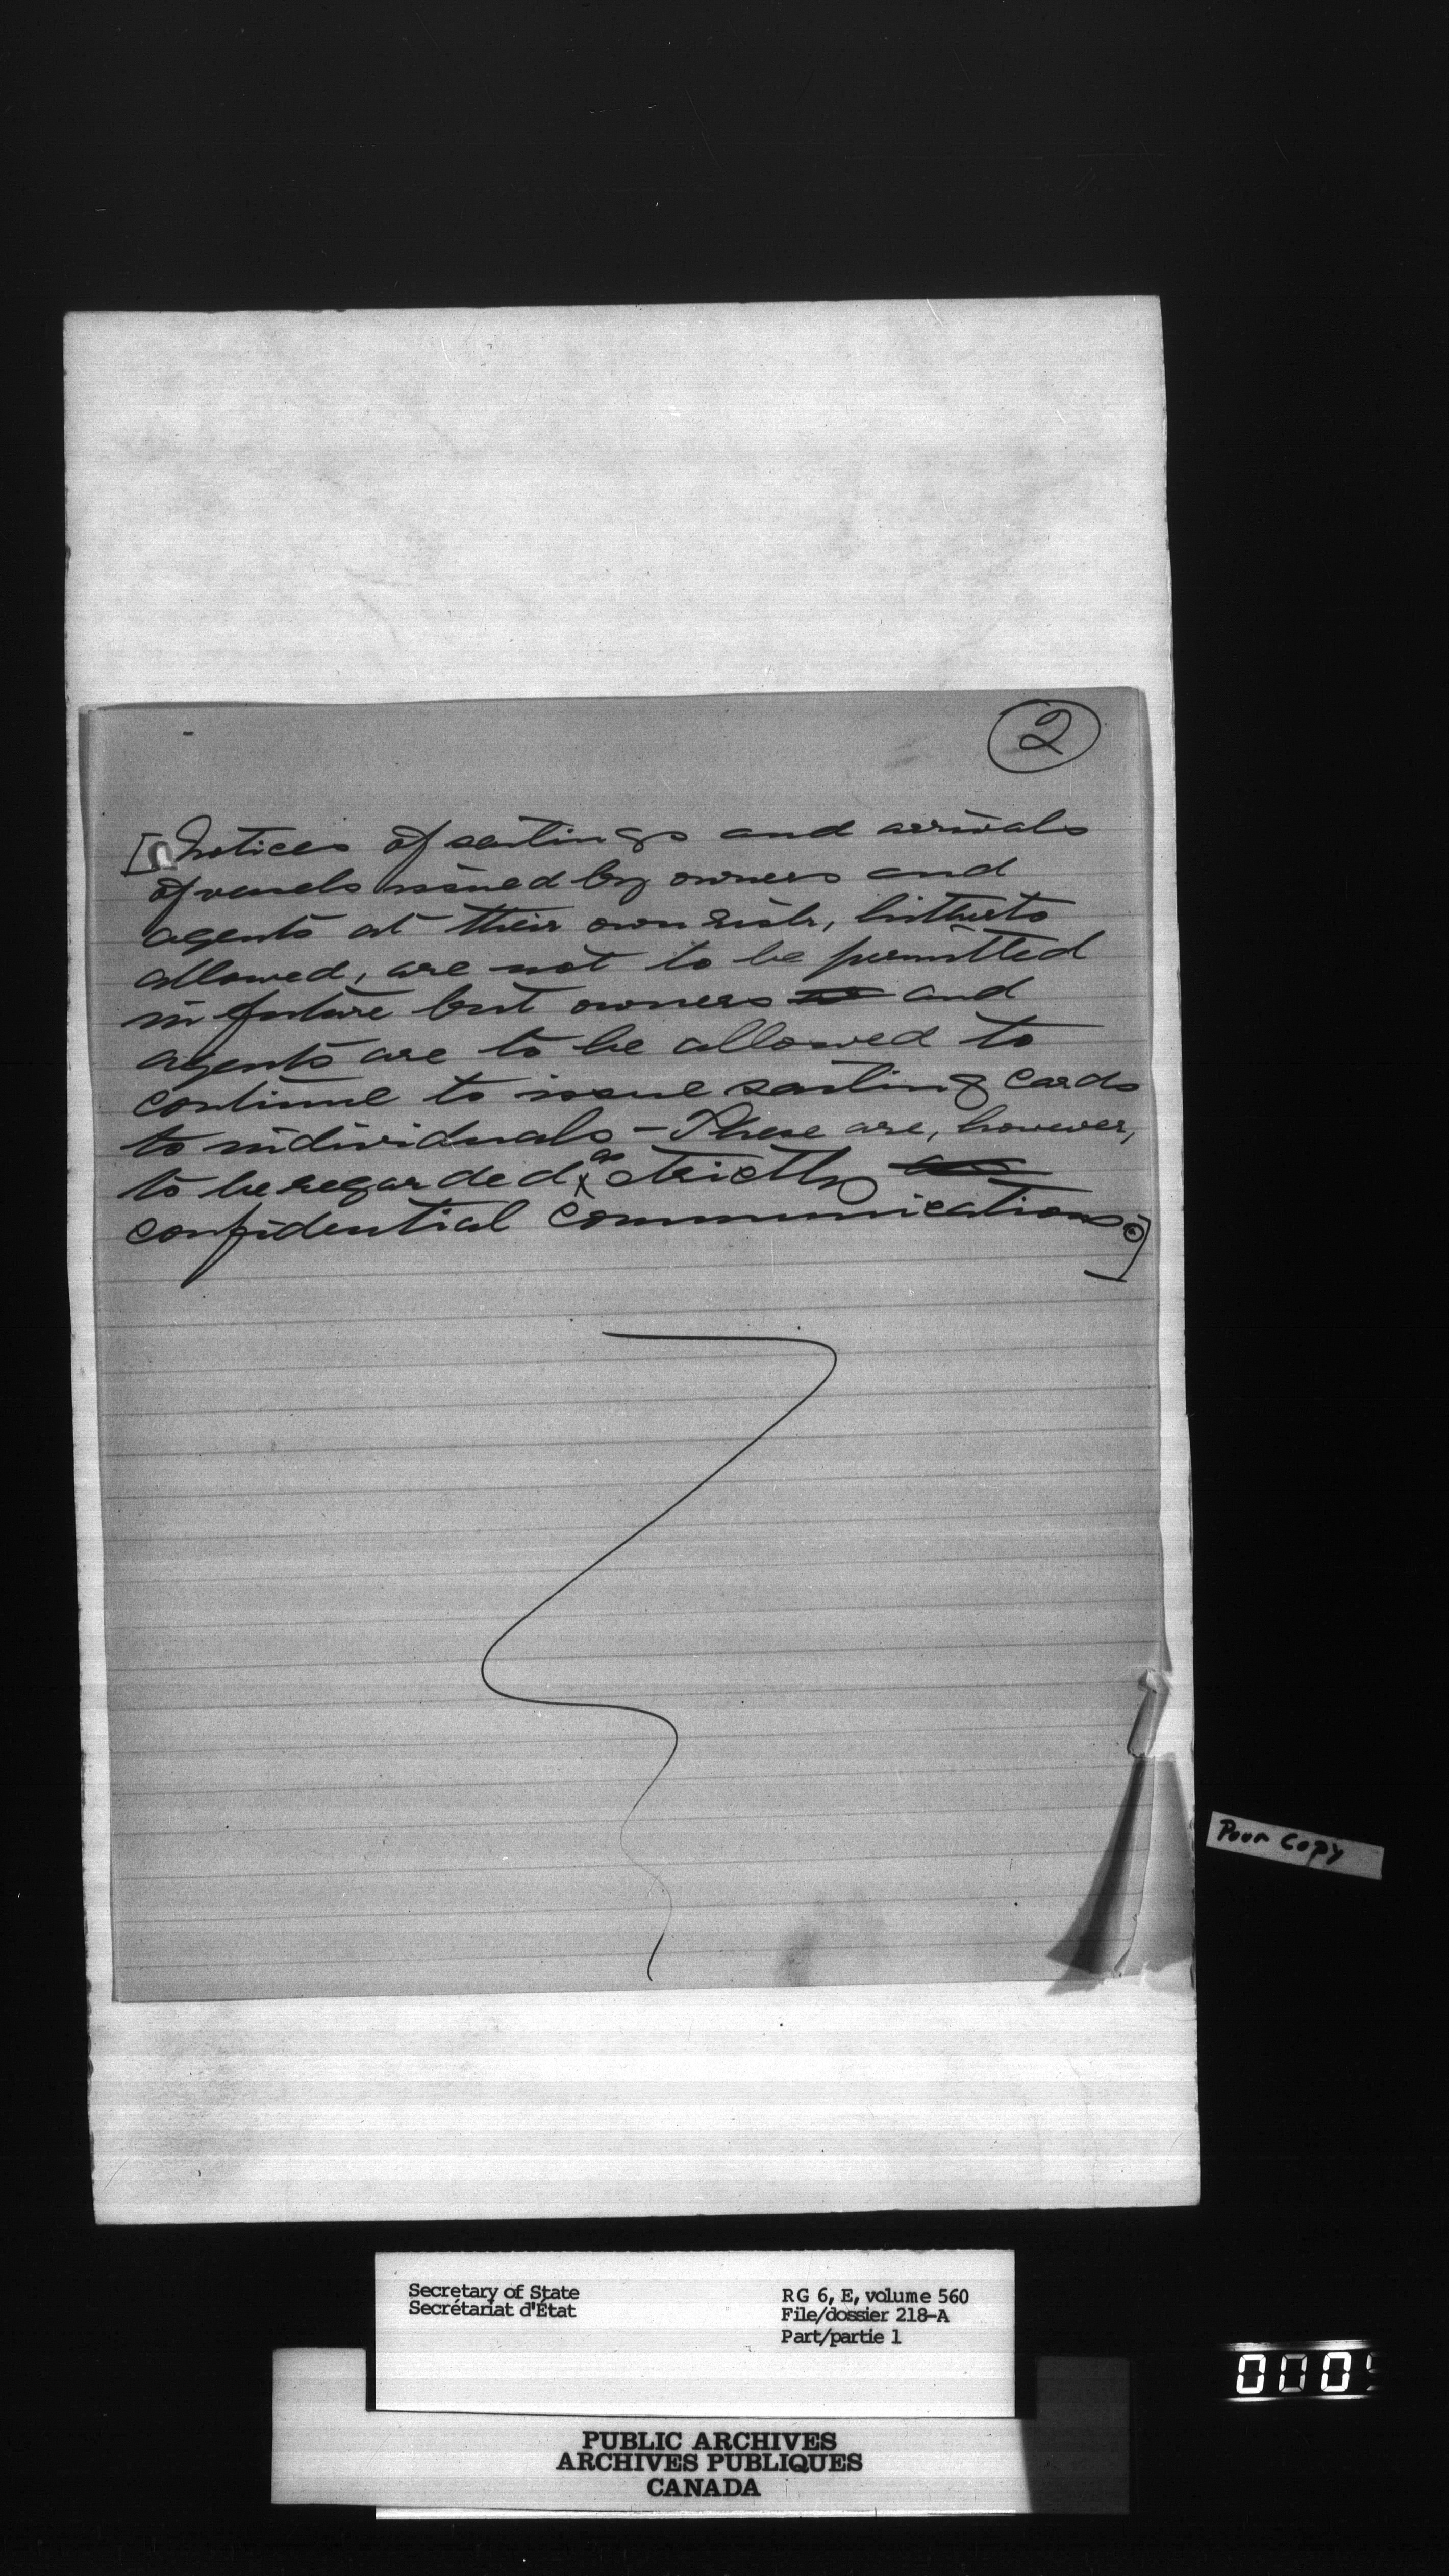 2
[Notices of sailings and arrivals
of vessels issued by owners and
agents at their own risk, hitherto
allowed, are not to be permitted
in future but owners and
agents are to be allowed to
continue to issue sailing cards
to individuals – These are, however,
to be regarded as strictly
confidential communications.]
Poor Copy
Secretary of State
Secrétariat d'État
RG 6, E, volume 560
File/dossier 218-A
Part/partie 1
000
PUBLIC ARCHIVES
ARCHIVES PUBLIQUES
CANADA